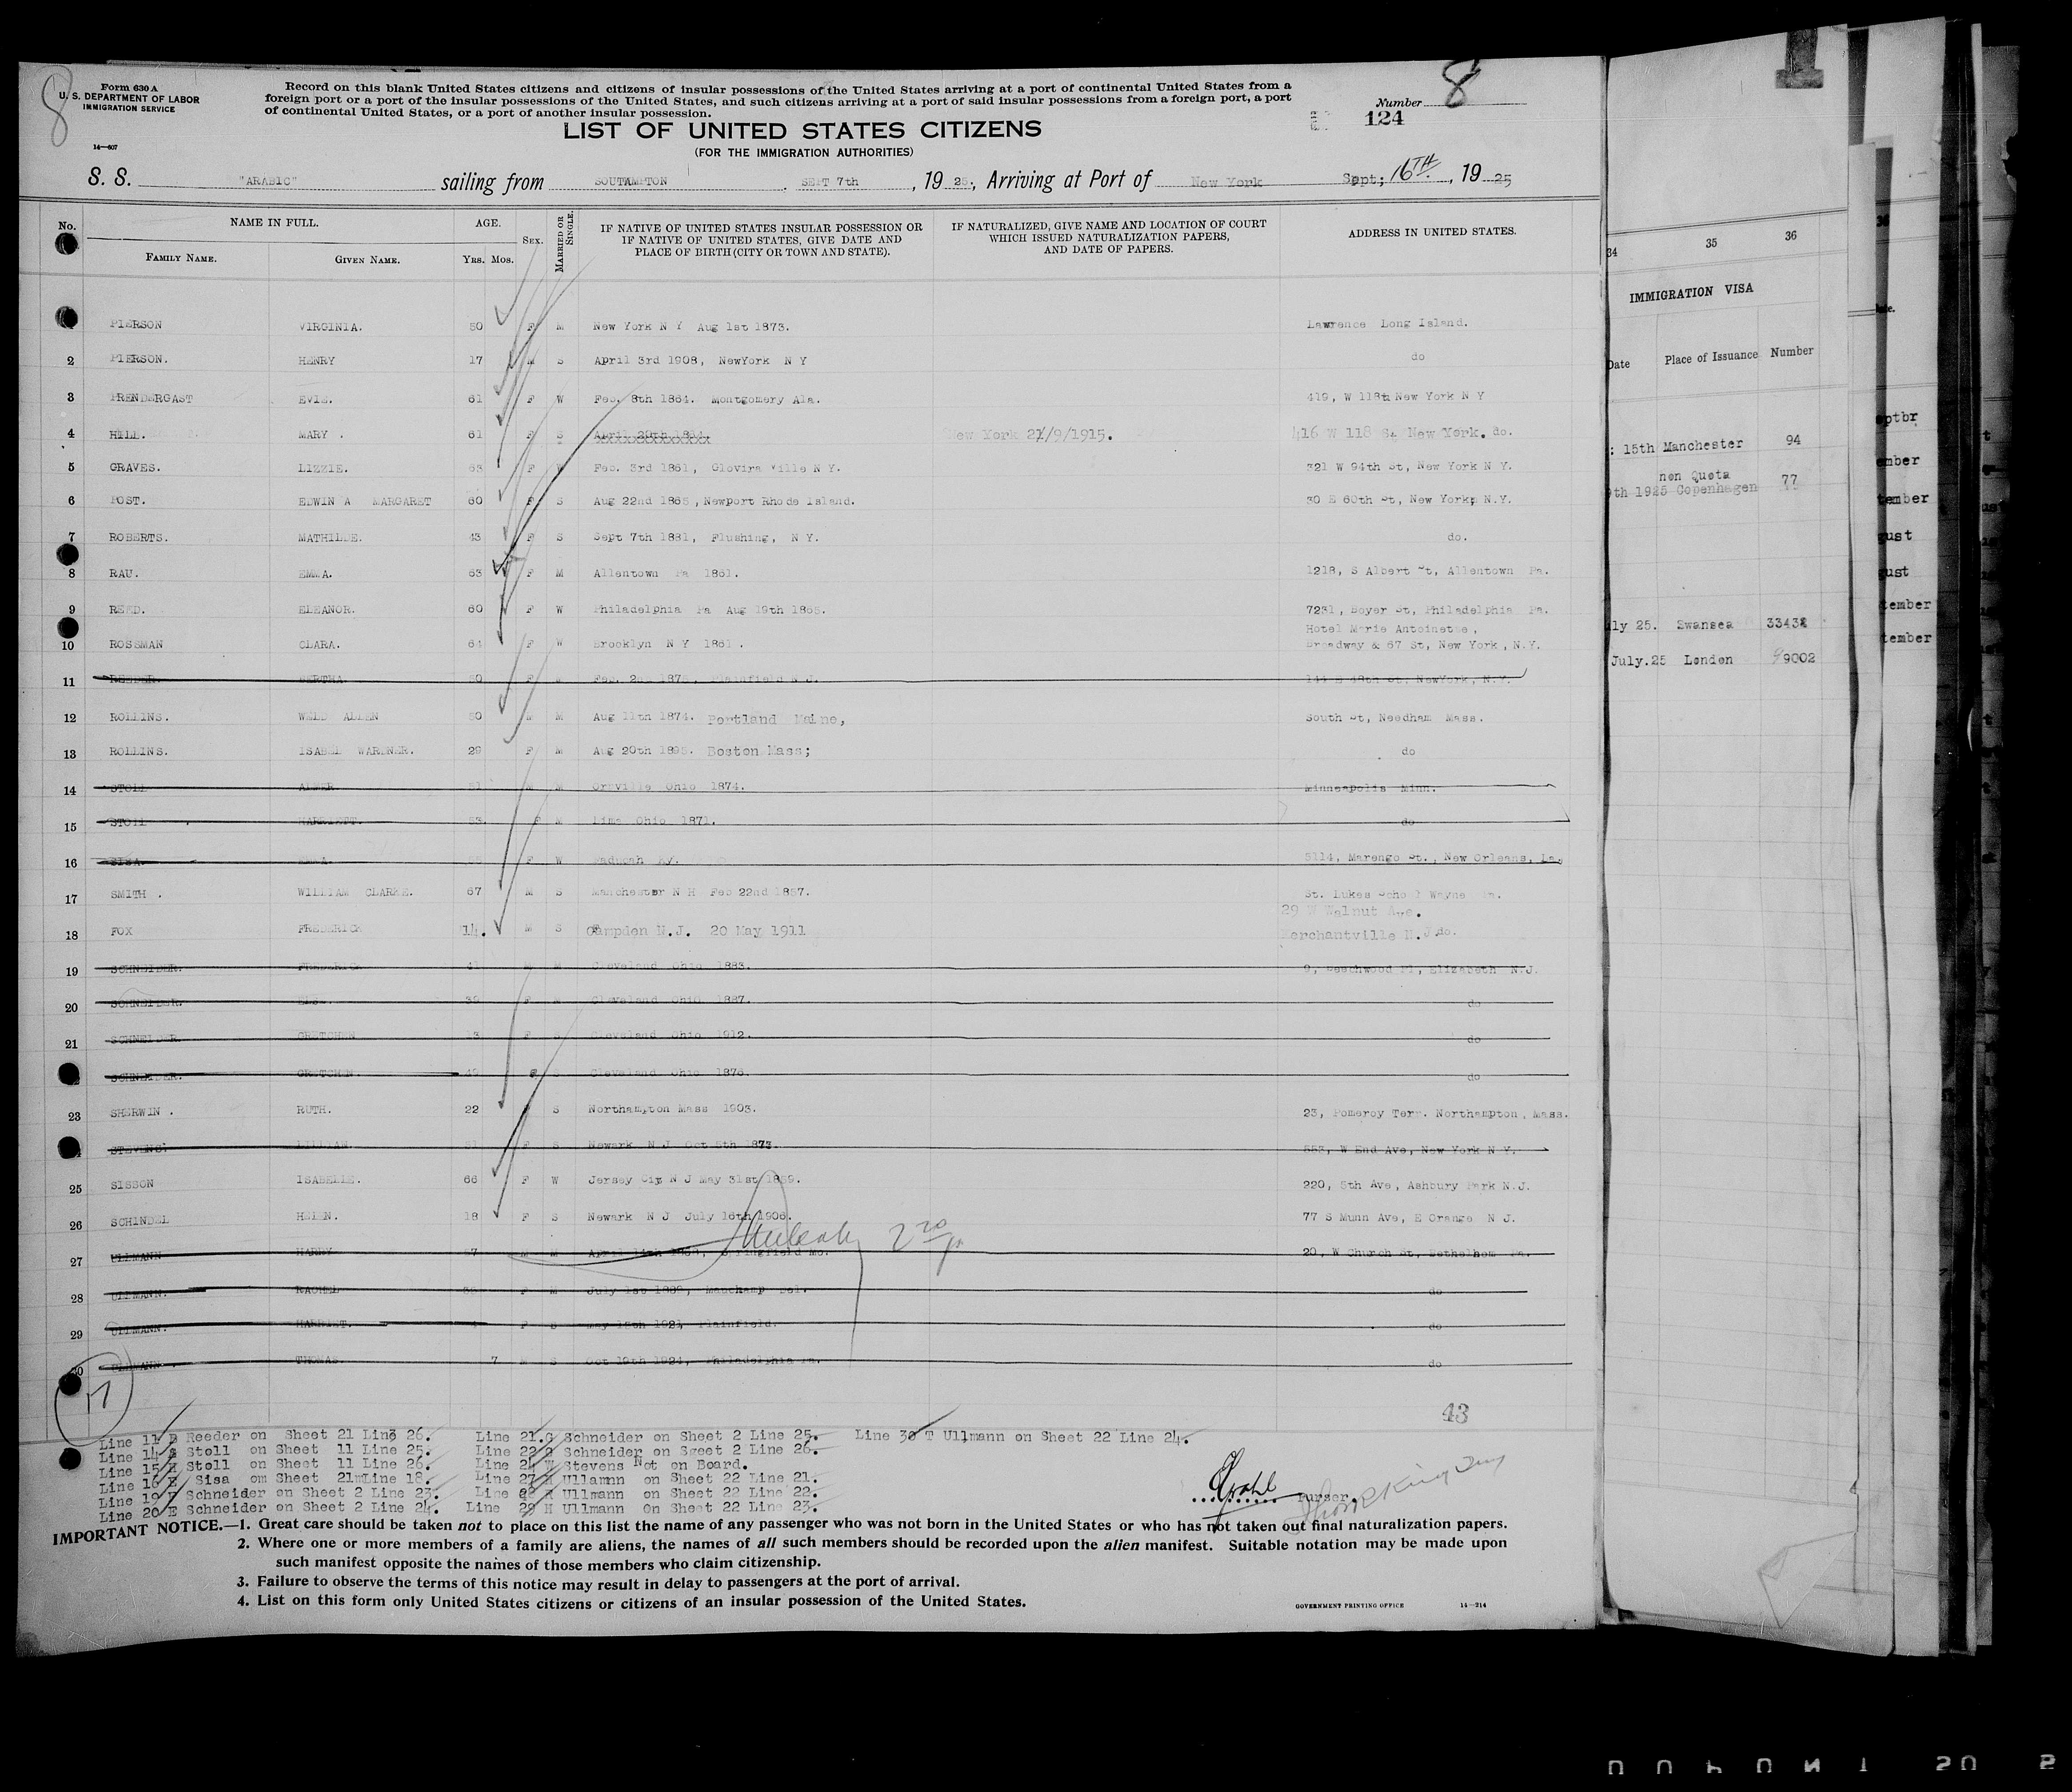 8
Form 630 A
U. S. DEPARTMENT OF LABOR
IMMIGRATION SERVICE
14—607
Record on this blank United States citizens and citizens of insular possessions of the United States arriving at a port of continental United States from a
foreign port or a port of the insular possessions of the United States, and such citizens arriving at a port of said insular possessions from a foreign port, a port
of continental United States, or a port of another insular possession.
Number 8
124
LIST OF UNITED STATES CITIZENS
(FOR THE IMMIGRATION AUTHORITIES)
S. S. "ARABIC" sailing from SOUTAMPTON , SEPT 7th , 19 25, Arriving at Port of New York Sept; 16TH , 19 25
No. NAME IN FULL. AGE. SEX. MARRIED OR SINGLE. IF NATIVE OF UNITED STATES INSULAR POSSESSION OR IF NATIVE OF UNITED STATES, GIVE DATE AND PLACE OF BIRTH (CITY OR TOWN AND STATE). IF NATURALIZED, GIVE NAME AND LOCATION OF COURT WHICH ISSUED NATURALIZATION PAPERS, AND DATE OF PAPERS. ADDRESS IN UNITED STATES.
FAMILY NAME. GIVEN NAME. YRS. MOS.
PIERSON VIRGINIA. 50 F M New York N Y Aug 1st 1873. Lawrence Long Island.
2 PIERSON. HENRY 17 M S April 3rd 1908, NewYork N Y do
3 PRENDERGAST EVIE. 61 F W Feb. 8th 1864. Montgomery Ala. 419, W 118th New York N Y
4 HILL. MARY . 61 F S New York 27/9/1915. 416 W 118 St New York. do.
5 GRAVES. LIZZIE. 63 F W Feb. 3rd 1861, Glovirs Ville N Y. 321 W 94th St, New York N Y.
6 POST. EDWIN A MARGARET 60 F S Aug 22nd 1865, Newport Rhode Island. 30 E 60th St, New York, N.Y.
7 ROBERTS. MATHILDE. 43 F S Sept 7th 1881, Flushing, N Y. do.
8 RAU. EMMA. 63 F M Allentown Pa 1861. 1218, S Albert St, Allentown Pa.
9 REED. ELEANOR. 60 F W Philadelphia Pa Aug 19th 1865. 7231, Boyer St, Philadelphia Pa.
10 ROSSMAN CLARA. 64 F W Brooklyn N Y 1861. Hotel Marie Antoinette,
Broadway & 67 St, New York, N.Y.
11 REEDER. BERTHA 50 F Feb. 2nd 1875, Plainfield N J. 144 E 48th St, NewYork, N.Y.
12 ROLLINS. WELD ALLEN 50 M M Aug 11th 1874. Portland Maine, South St, Needham Mass.
13 ROLLINS. ISABEL WARDNER. 29 F M Aug 20th 1895. Boston Mass; do
14 STOLL 51 M M Orrville Ohio 1874. Minneapolis Minn.
15 STOLL HARRIETT. 53 F M Lima Ohio 1871. do
16 SISA. F W Paducah Ky. 5114, Marengo St., New Orleans, La,
17 SMITH . WILLIAM CLARKE. 67 M S Manchester N H Feb 22nd 1857. St. Lukes School Wayne Pa.
29 W Walnut Ave.
18 FOX FREDERICK 14. M S Campden N.J. 20 May 1911 Merchantville N.J do.
19 SCHNEIDER. FREDERICK 41 M M Cleveland Ohio 1883. 9, Beechwood Pl, Elizabeth N.J.
20 SCHNEIDER. ELSE. F M Cleveland Ohio 1887. do
21 SCHNEIDER GRETCHEN 13 F S Cleveland Ohio 1912. do
SCHNEIDER. GRETCHEN. 49 S Cleveland Ohio 1876. do
23 SHERWIN . RUTH. 22 F S Northampton Mass 1903. 23, Pomeroy Terr. Northampton, Mass.
STEVENS. LILLIAN. 51 F S Newark N J Oct 5th 1873. 553, W End Ave, New York N Y.
25 SISSON ISABELLE. 66 F W Jersey City N J May 31st 1859. 220, 5th Ave, Ashbury Park N.J.
26 SCHINDEL HELEN. 18 F S Newark N J July 16th 1906. 77 S Munn Ave, E Orange N J.
27 ULLMANN HARRY M M April 14th Springfield Mo. 20, W Church St, Bethelhem Pa.
28 ULLMANN. RACHEL F M July 1st 1882, do
29 ULLMANN. HARRIET. F S May 15th 1921, Plainfield. do
30 ULLMANN . THOMAS. 7 M S Oct 19th 1924, Philadelphia Pa. do
17
43
Line 11 B Reeder on Sheet 21 Line 26. Line 21.G Schneider on Sheet 2 Line 25. Line 30 T Ullmann on Sheet 22 Line 24.
Line 14 A Stoll on Sheet 11 Line 25. Line 22 G Schneider on Sgeet 2 Line 26.
Line 15 H Stoll on Sheet 11 Line 26. Line 24 Stevens Not on Board.
Line 16 E Sisa om Sheet 21mLine 18. Line 27 H Ullamnn on Sheet 22 Line 21.
Line 19 F Schneider on Sheet 2 Line 23. Line 28 R Ullmann on Sheet 22 Line 22.
Line 20 E Schneider on Sheet 2 Line 24. Line 29 H Ullmann on Sheet 22 Line 23.
Purser.
IMPORTANT NOTICE.—1. Great care should be taken not to place on this list the name of any passenger who was not born in the United States or who has not taken out final naturalization papers.
2. Where one or more members of a family are aliens, the names of all such members should be recorded upon the alien manifest. Suitable notation may be made upon
such manifest opposite the names of those members who claim citizenship.
3. Failure to observe the terms of this notice may result in delay to passengers at the port of arrival.
4. List on this form only United States citizens or citizens of an insular possession of the United States.
GOVERNMENT PRINTING OFFICE 14—214
34 35 36
IMMIGRATION VISA
Date Place of Issuance Number
: 15th Manchester 94
non Quota
9th 1925 Copenhagen 77
uly 25. Swansea 33438
July.25 London 99002
ptbr
mber
tember
gust
gust
tember
tember